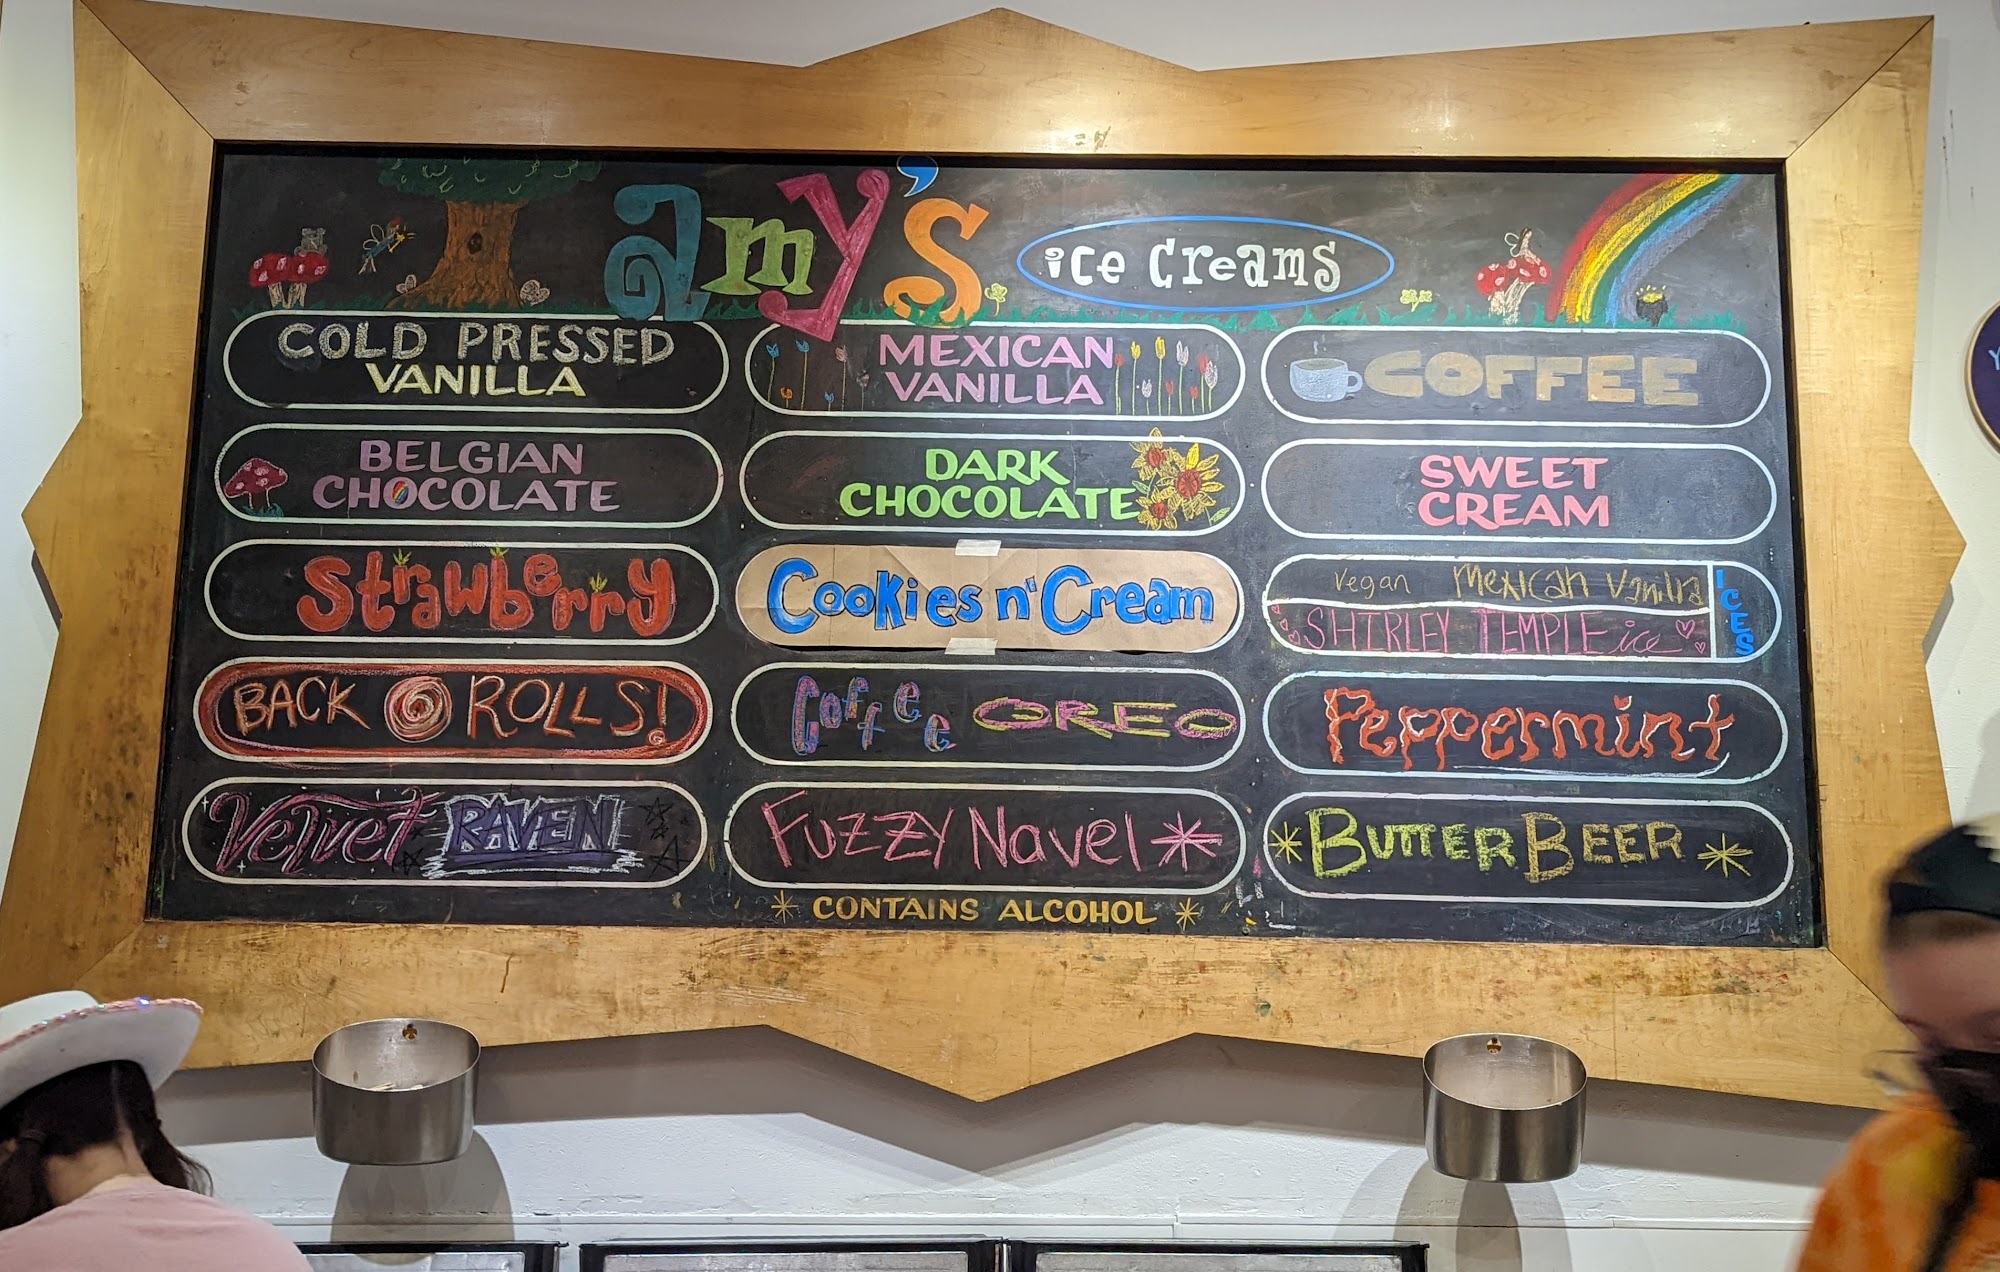 amy's ice creams
COLD PRESSED
VANILLA
MEXICAN
VANILLA
COFFEE
BELGIAN
CHOCOLATE
DARK
CHOCOLATE
SWEET
CREAM
Strawberry
Cookies n' Cream
vegan Mexican Vanilla
SHIRLEY TEMPLE ice
ICES
BACK @ ROLLS!
Coffee OREO
Peppermint
Velvet RAVEN
FUZZY Navel *
* BUTTER BEER *
* CONTAINS ALCOHOL *